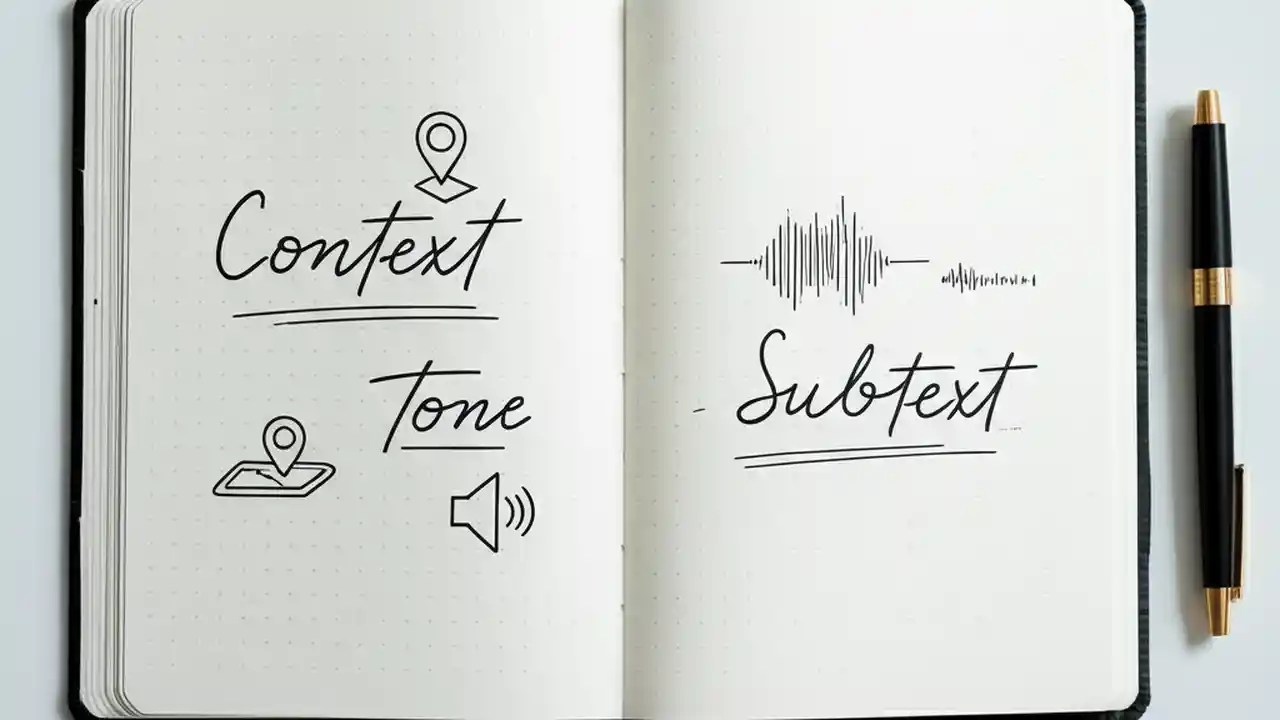 Context
Tone
Subtext